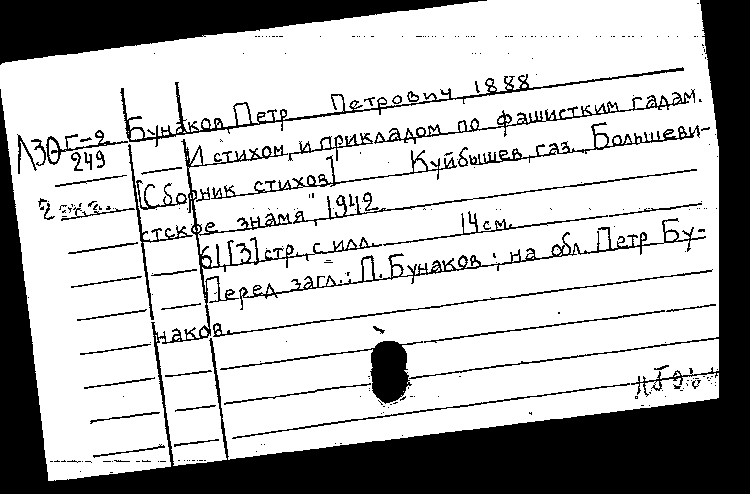 ЛЭО Г-2
249
Бунаков, Петр Петрович, 1888
И стихом, и прикладом по фашистким гадам.
[Сборник стихов] Куйбышев, газ. "Большеви-
2 экз.
стское знамя", 1942.
61,[3]стр., с илл. 14см.
Перед загл.: П.Бунаков; на обл. Петр Бу-
наков.